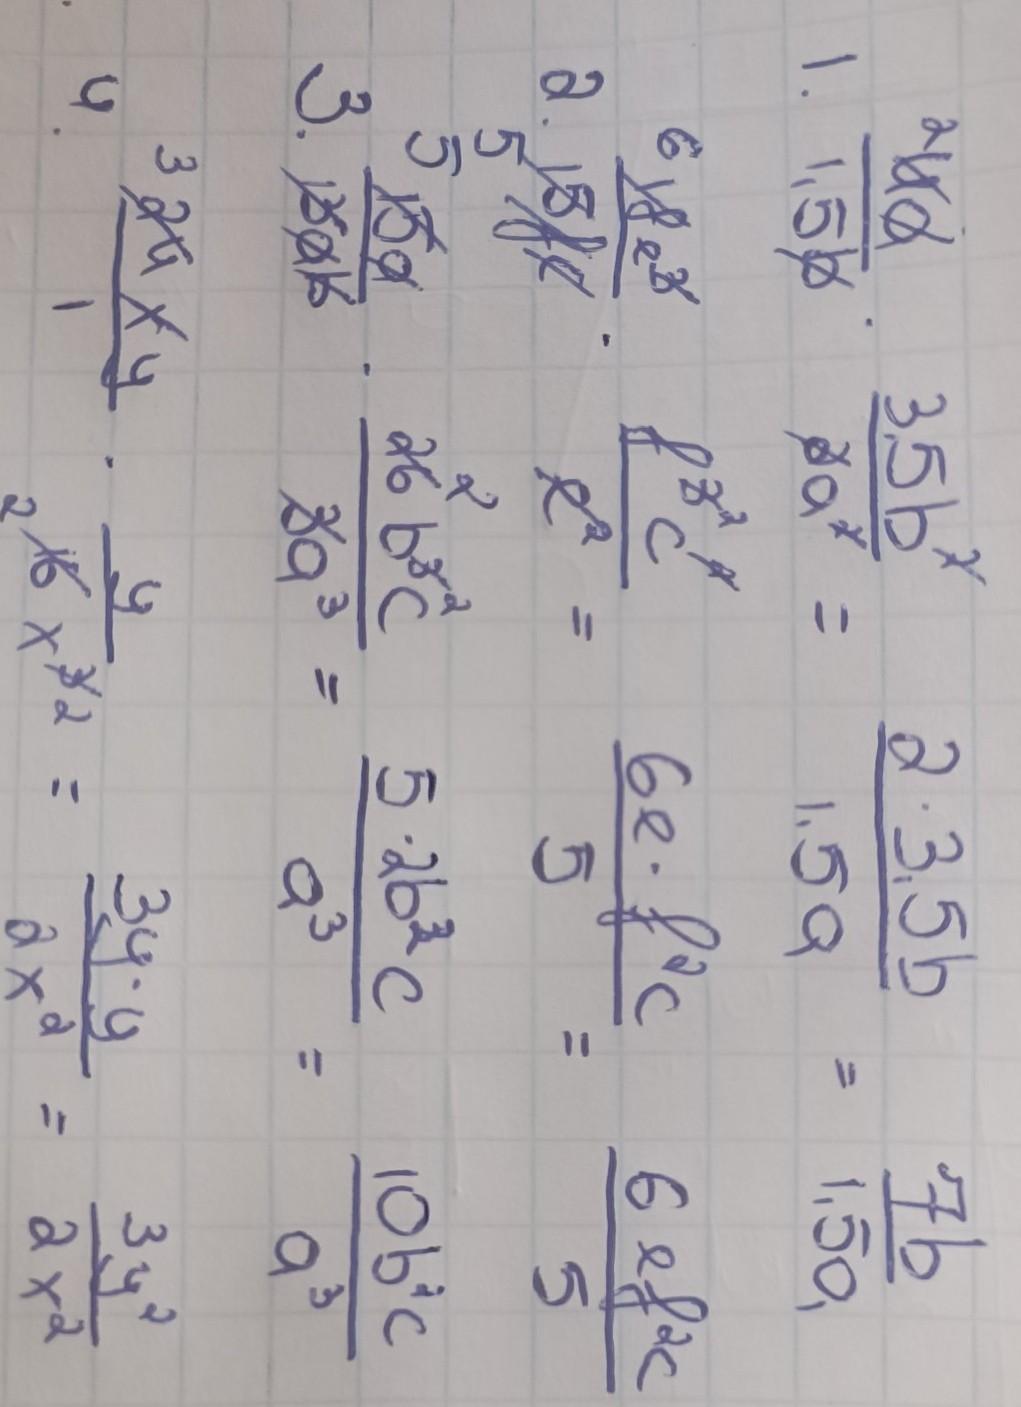 1. 4a/1,5b · 3,5b²/2a² = 2·3,5b/1,5a = 7b/1,5a
2. 18e³/15fe · f³c/e² = 6e·f²c/5 = 6ef²c/5
3. 15a/13ab · 26b³c/3a³ = 5·2b²c/a³ = 10b²c/a³
4. 24xy/1 · y/16x³ = 3y·y/2x² = 3y²/2x²